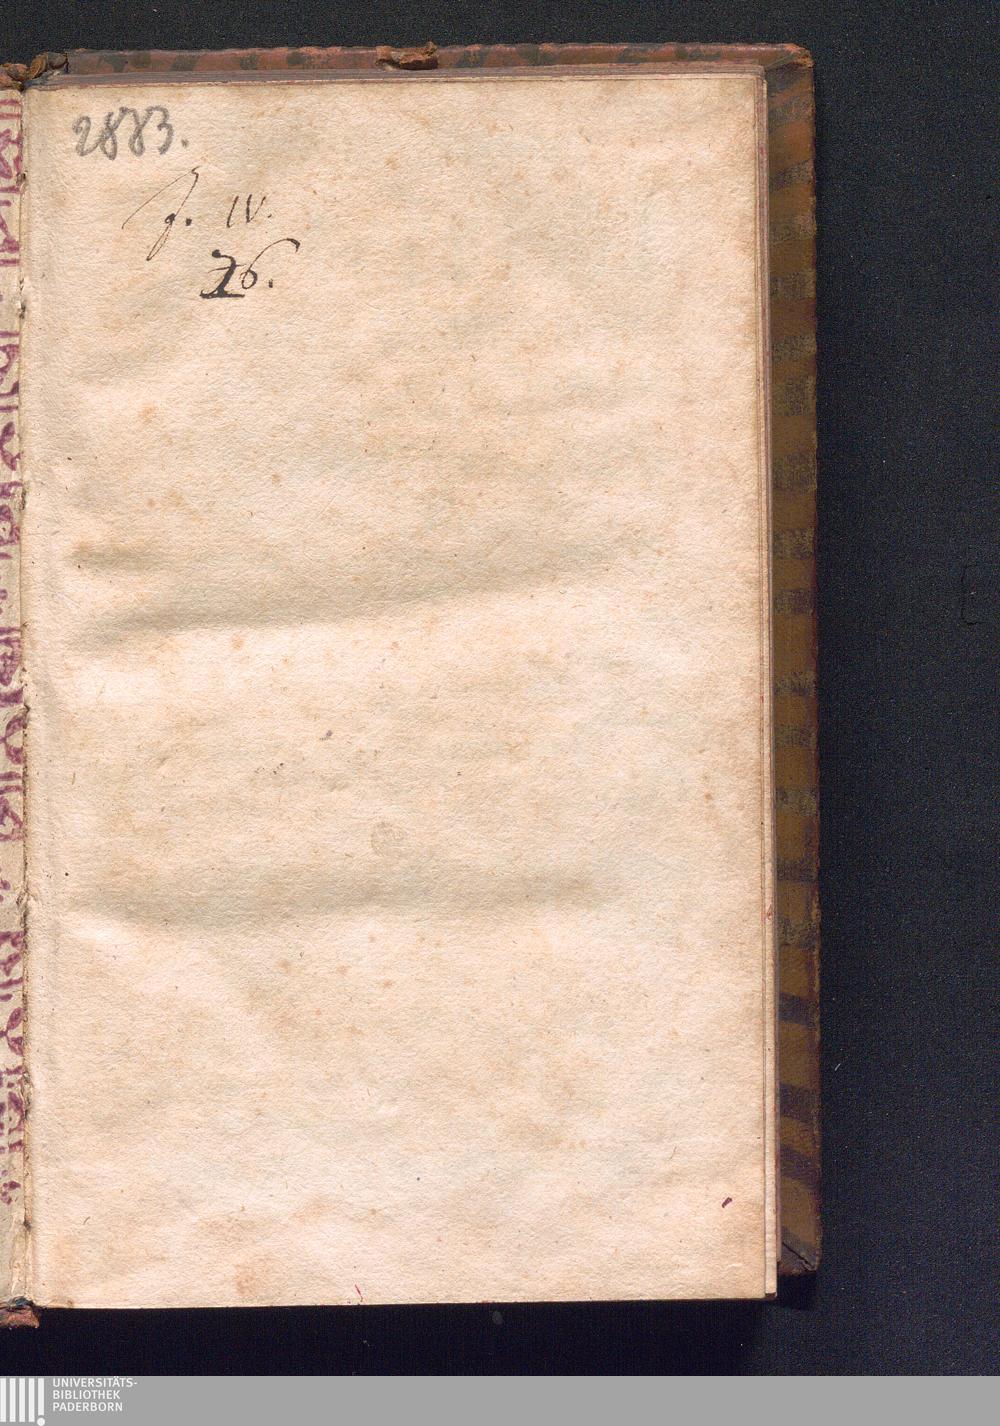 2883.
J. IV.
26.
UNIVERSITÄTS-
BIBLIOTHEK
PADERBORN